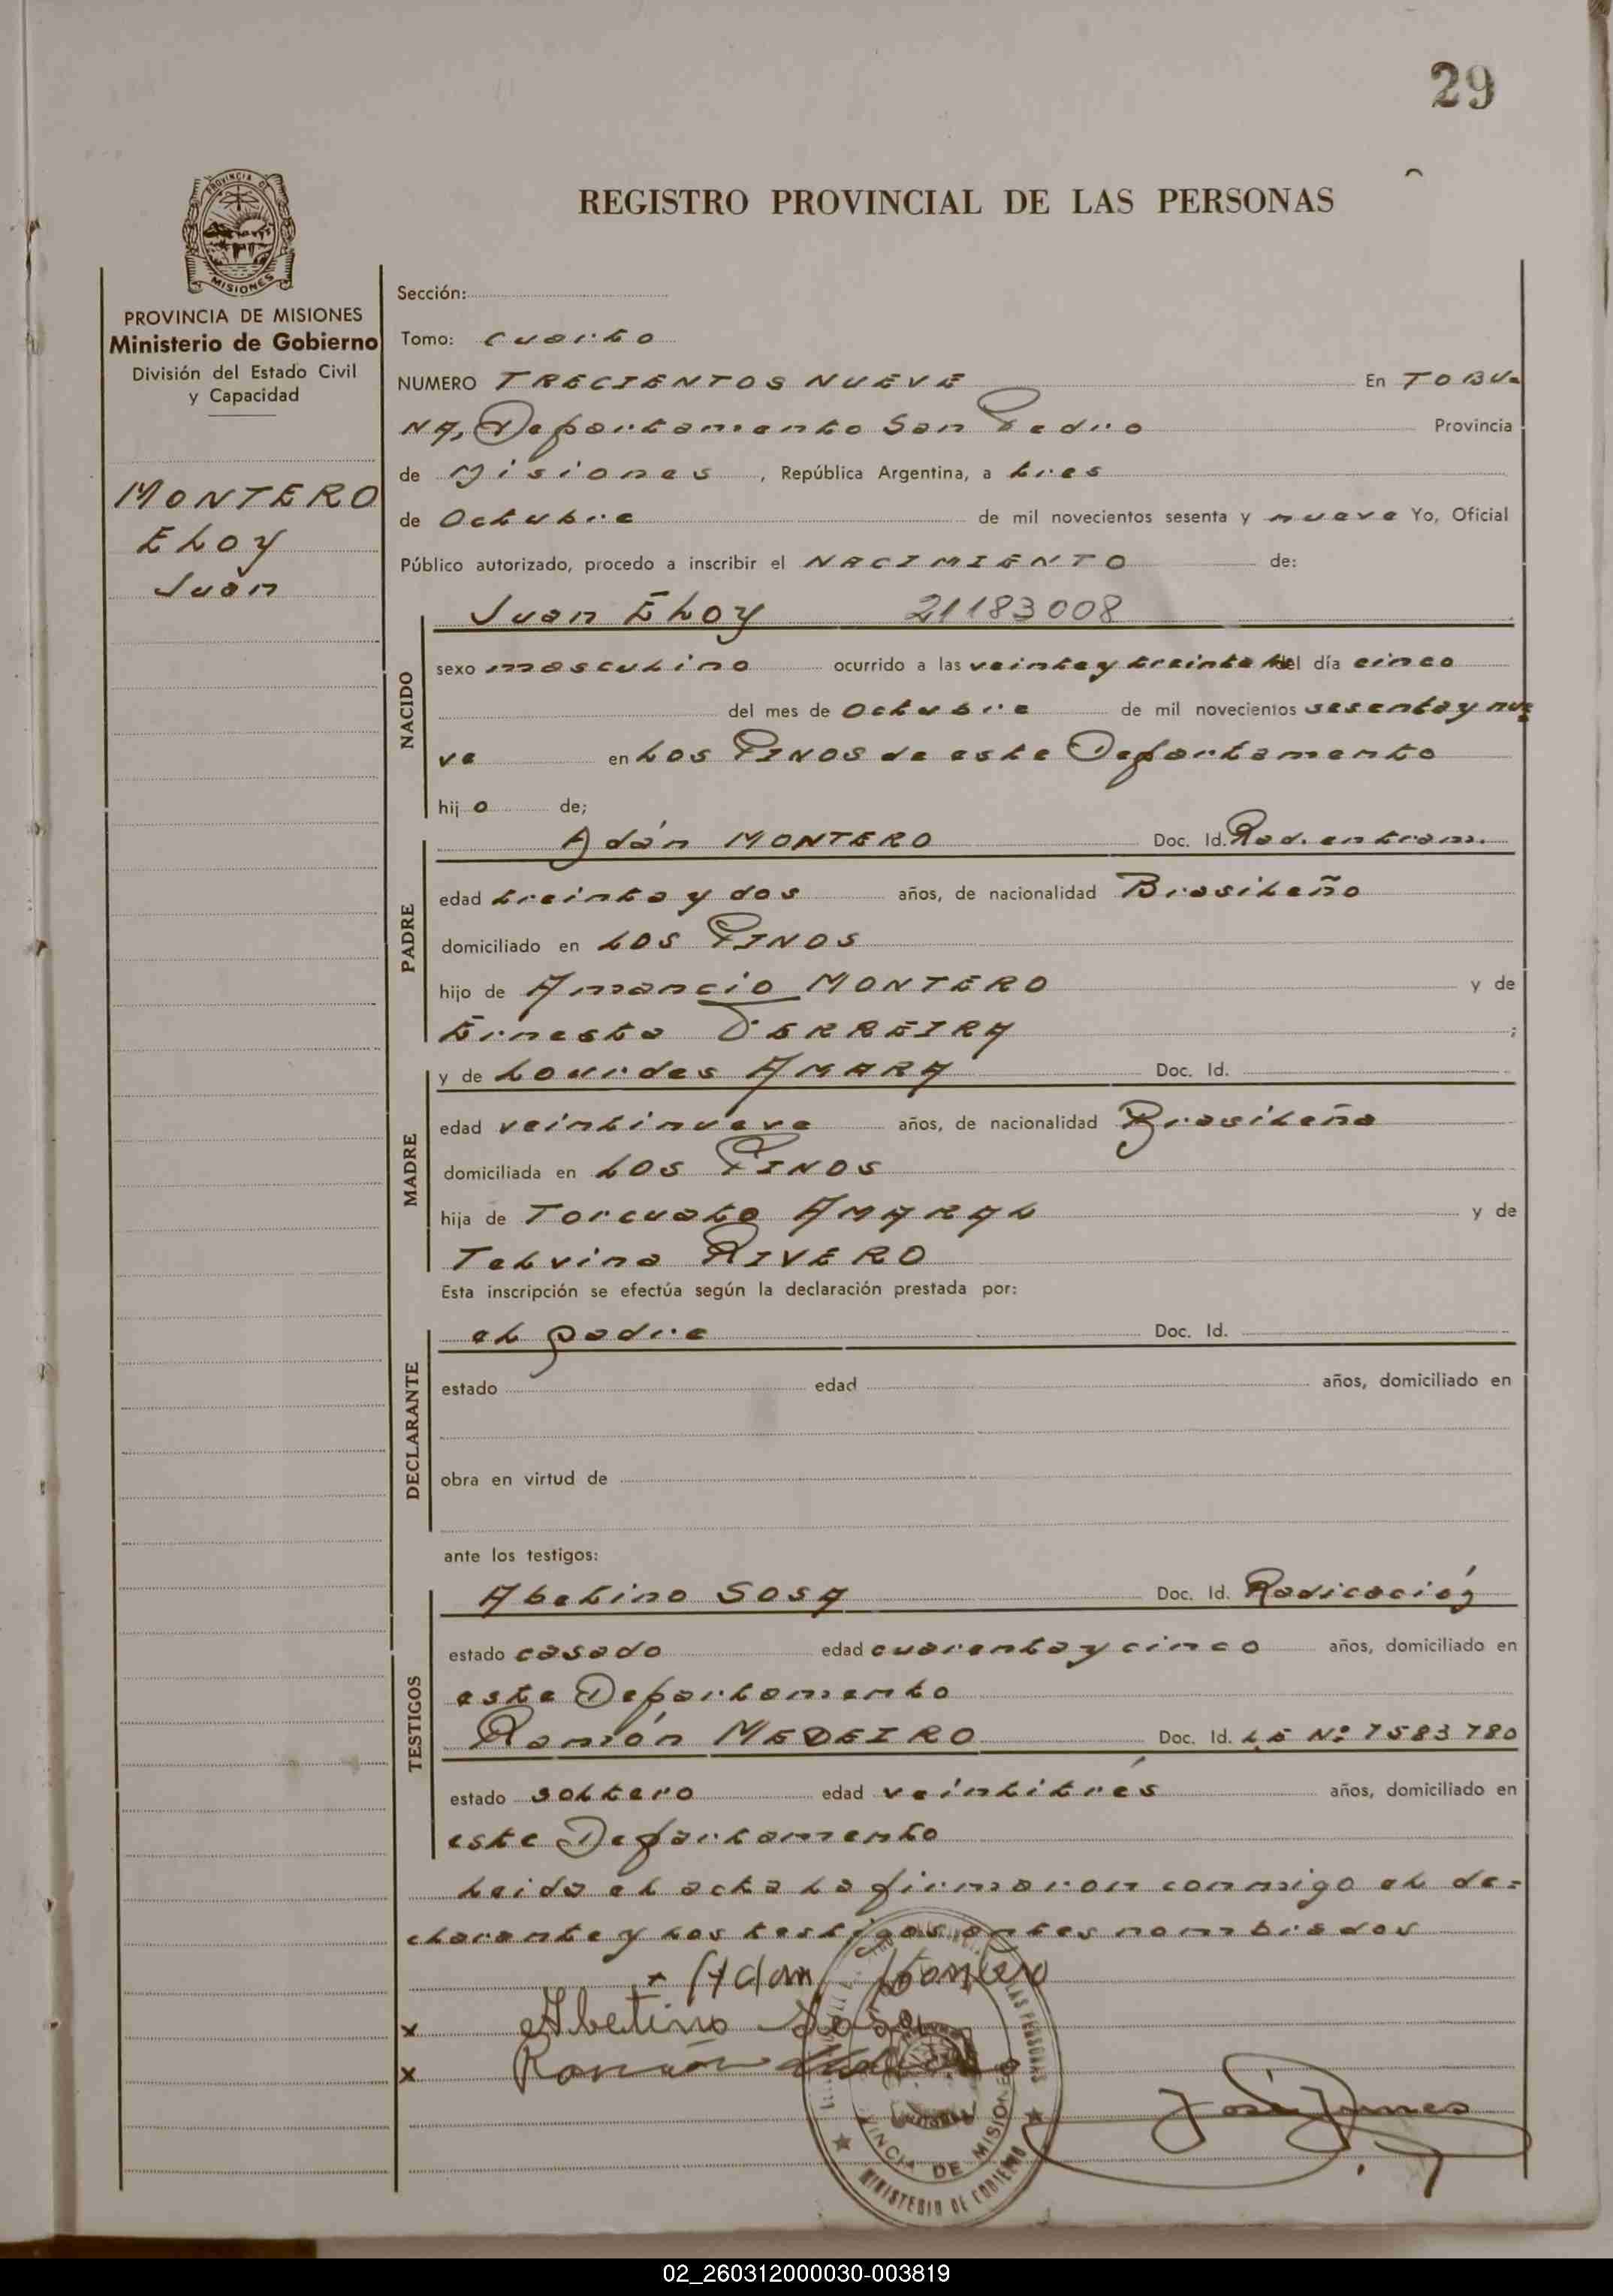 29
REGISTRO PROVINCIAL DE LAS PERSONAS
PROVINCIA DE
MISIONES
PROVINCIA DE MISIONES
Ministerio de Gobierno
División del Estado Civil
y Capacidad
MONTERO
Eloy
Juan
Sección:
Tomo: cuarto
NUMERO TRECIENTOS NUEVE En TOBU-
NA, Departamento San Pedro Provincia
de Misiones, República Argentina, a tres
de Octubre de mil novecientos sesenta y nueve Yo, Oficial
Público autorizado, procedo a inscribir el NACIMIENTO de:
NACIDO
Juan Eloy 21183008
sexo masculino ocurrido a las veinte y treinta del día cinco
del mes de Octubre de mil novecientos sesenta y nue
ve en LOS PINOS de este Departamento
hijo de;
PADRE
Adán MONTERO Doc. Id. Rad. en tram.
edad treinta y dos años, de nacionalidad Brasileño
domiciliado en LOS PINOS
hijo de Amancio MONTERO y de
Ernesta FERREIRA ;
MADRE
y de Lourdes AMARA Doc. Id.
edad veintinueve años, de nacionalidad Brasileña
domiciliada en LOS PINOS
hija de Torcuato AMARAL y de
Telvina RIVERO
Esta inscripción se efectúa según la declaración prestada por:
DECLARANTE
el padre Doc. Id.
estado edad años, domiciliado en
obra en virtud de
ante los testigos:
TESTIGOS
Abelino SOSA Doc. Id. Radicación
estado casado edad cuarenta y cinco años, domiciliado en
este Departamento
Ramón MEDEIRO Doc. Id. LE Nº 7583780
estado soltero edad veintitrés años, domiciliado en
este Departamento
Leida el acta la firmaron conmigo el de=
clarante y los testigos antes nombrados
x Adam Montero
x Abelino Sosa
x Ramón
LAS PERSONAS
VINCIA DE MISIONES
MINISTERIO DE GOBIERNO
02_260312000030-003819